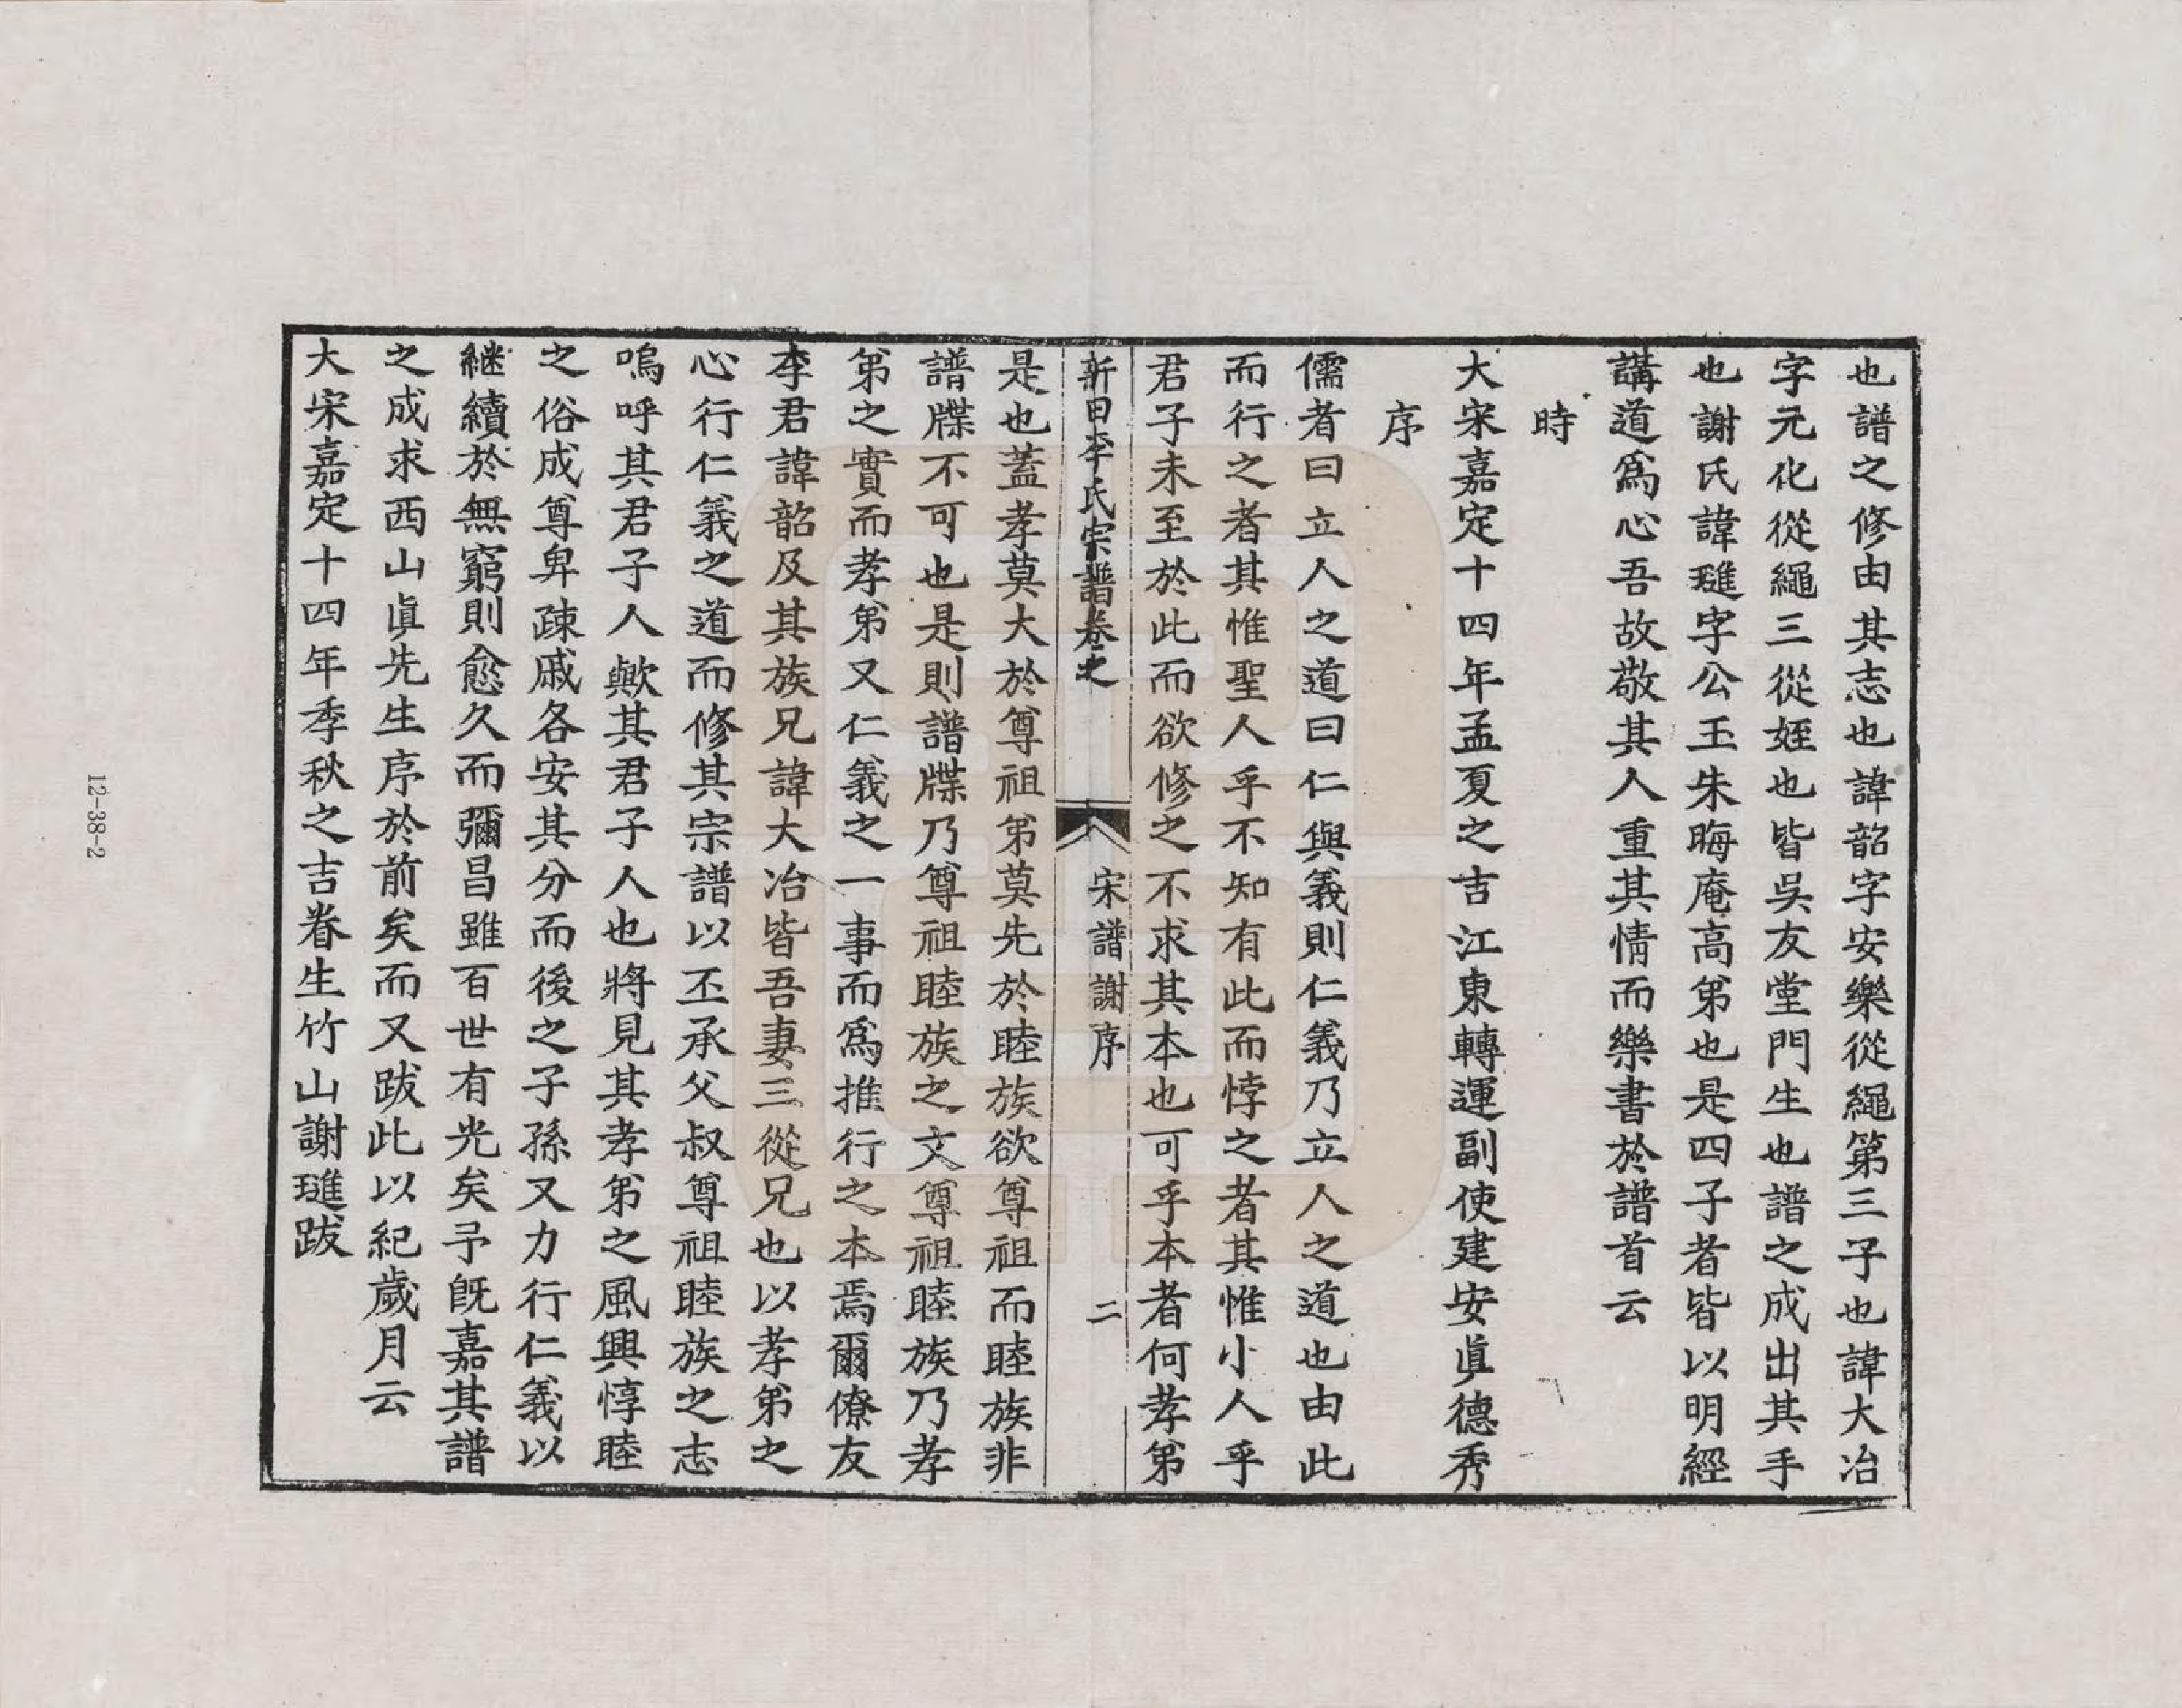 也譜之修由其志也諱韶字安樂從繩第三子也諱大冶
字元化從繩三從姪也皆吳友堂門生也譜之成出其手
也謝氏諱璡字公玉朱晦庵高第也是四子者皆以明經
講道為心吾故敬其人重其情而樂書於譜首云
時
大宋嘉定十四年孟夏之吉江東轉運副使建安眞德秀
序
儒者曰立人之道曰仁與義則仁義乃立人之道也由此
而行之者其惟聖人乎不知有此而悖之者其惟小人乎
君子未至於此而欲修之不求其本也可乎本者何孝第
新田李氏宗譜卷之
宋譜謝序
二
是也蓋孝莫大於尊祖第莫先於睦族欲尊祖而睦族非
譜牒不可也是則譜牒乃尊祖睦族之文尊祖睦族乃孝
第之實而孝第又仁義之一事而為推行之本焉爾僚友
李君諱韶及其族兄諱大冶皆吾妻三從兄也以孝第之
心行仁義之道而修其宗譜以丕承父叔尊祖睦族之志
嗚呼其君子人歟其君子人也將見其孝第之風興惇睦
之俗成尊卑疎戚各安其分而後之子孫又力行仁義以
継續於無窮則愈久而彌昌雖百世有光矣予既嘉其譜
之成求西山眞先生序於前矣而又跋此以紀歲月云
大宋嘉定十四年季秋之吉眷生竹山謝璡跋
12-38-2